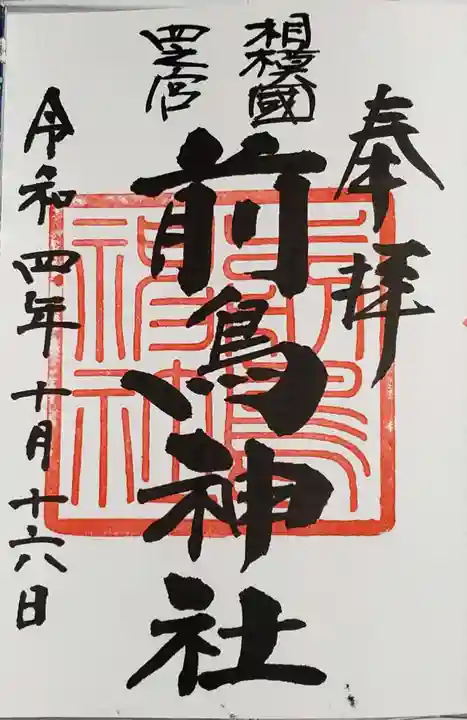 奉拝
相模國
四之宮
前鳥神社
令和四年十月十六日